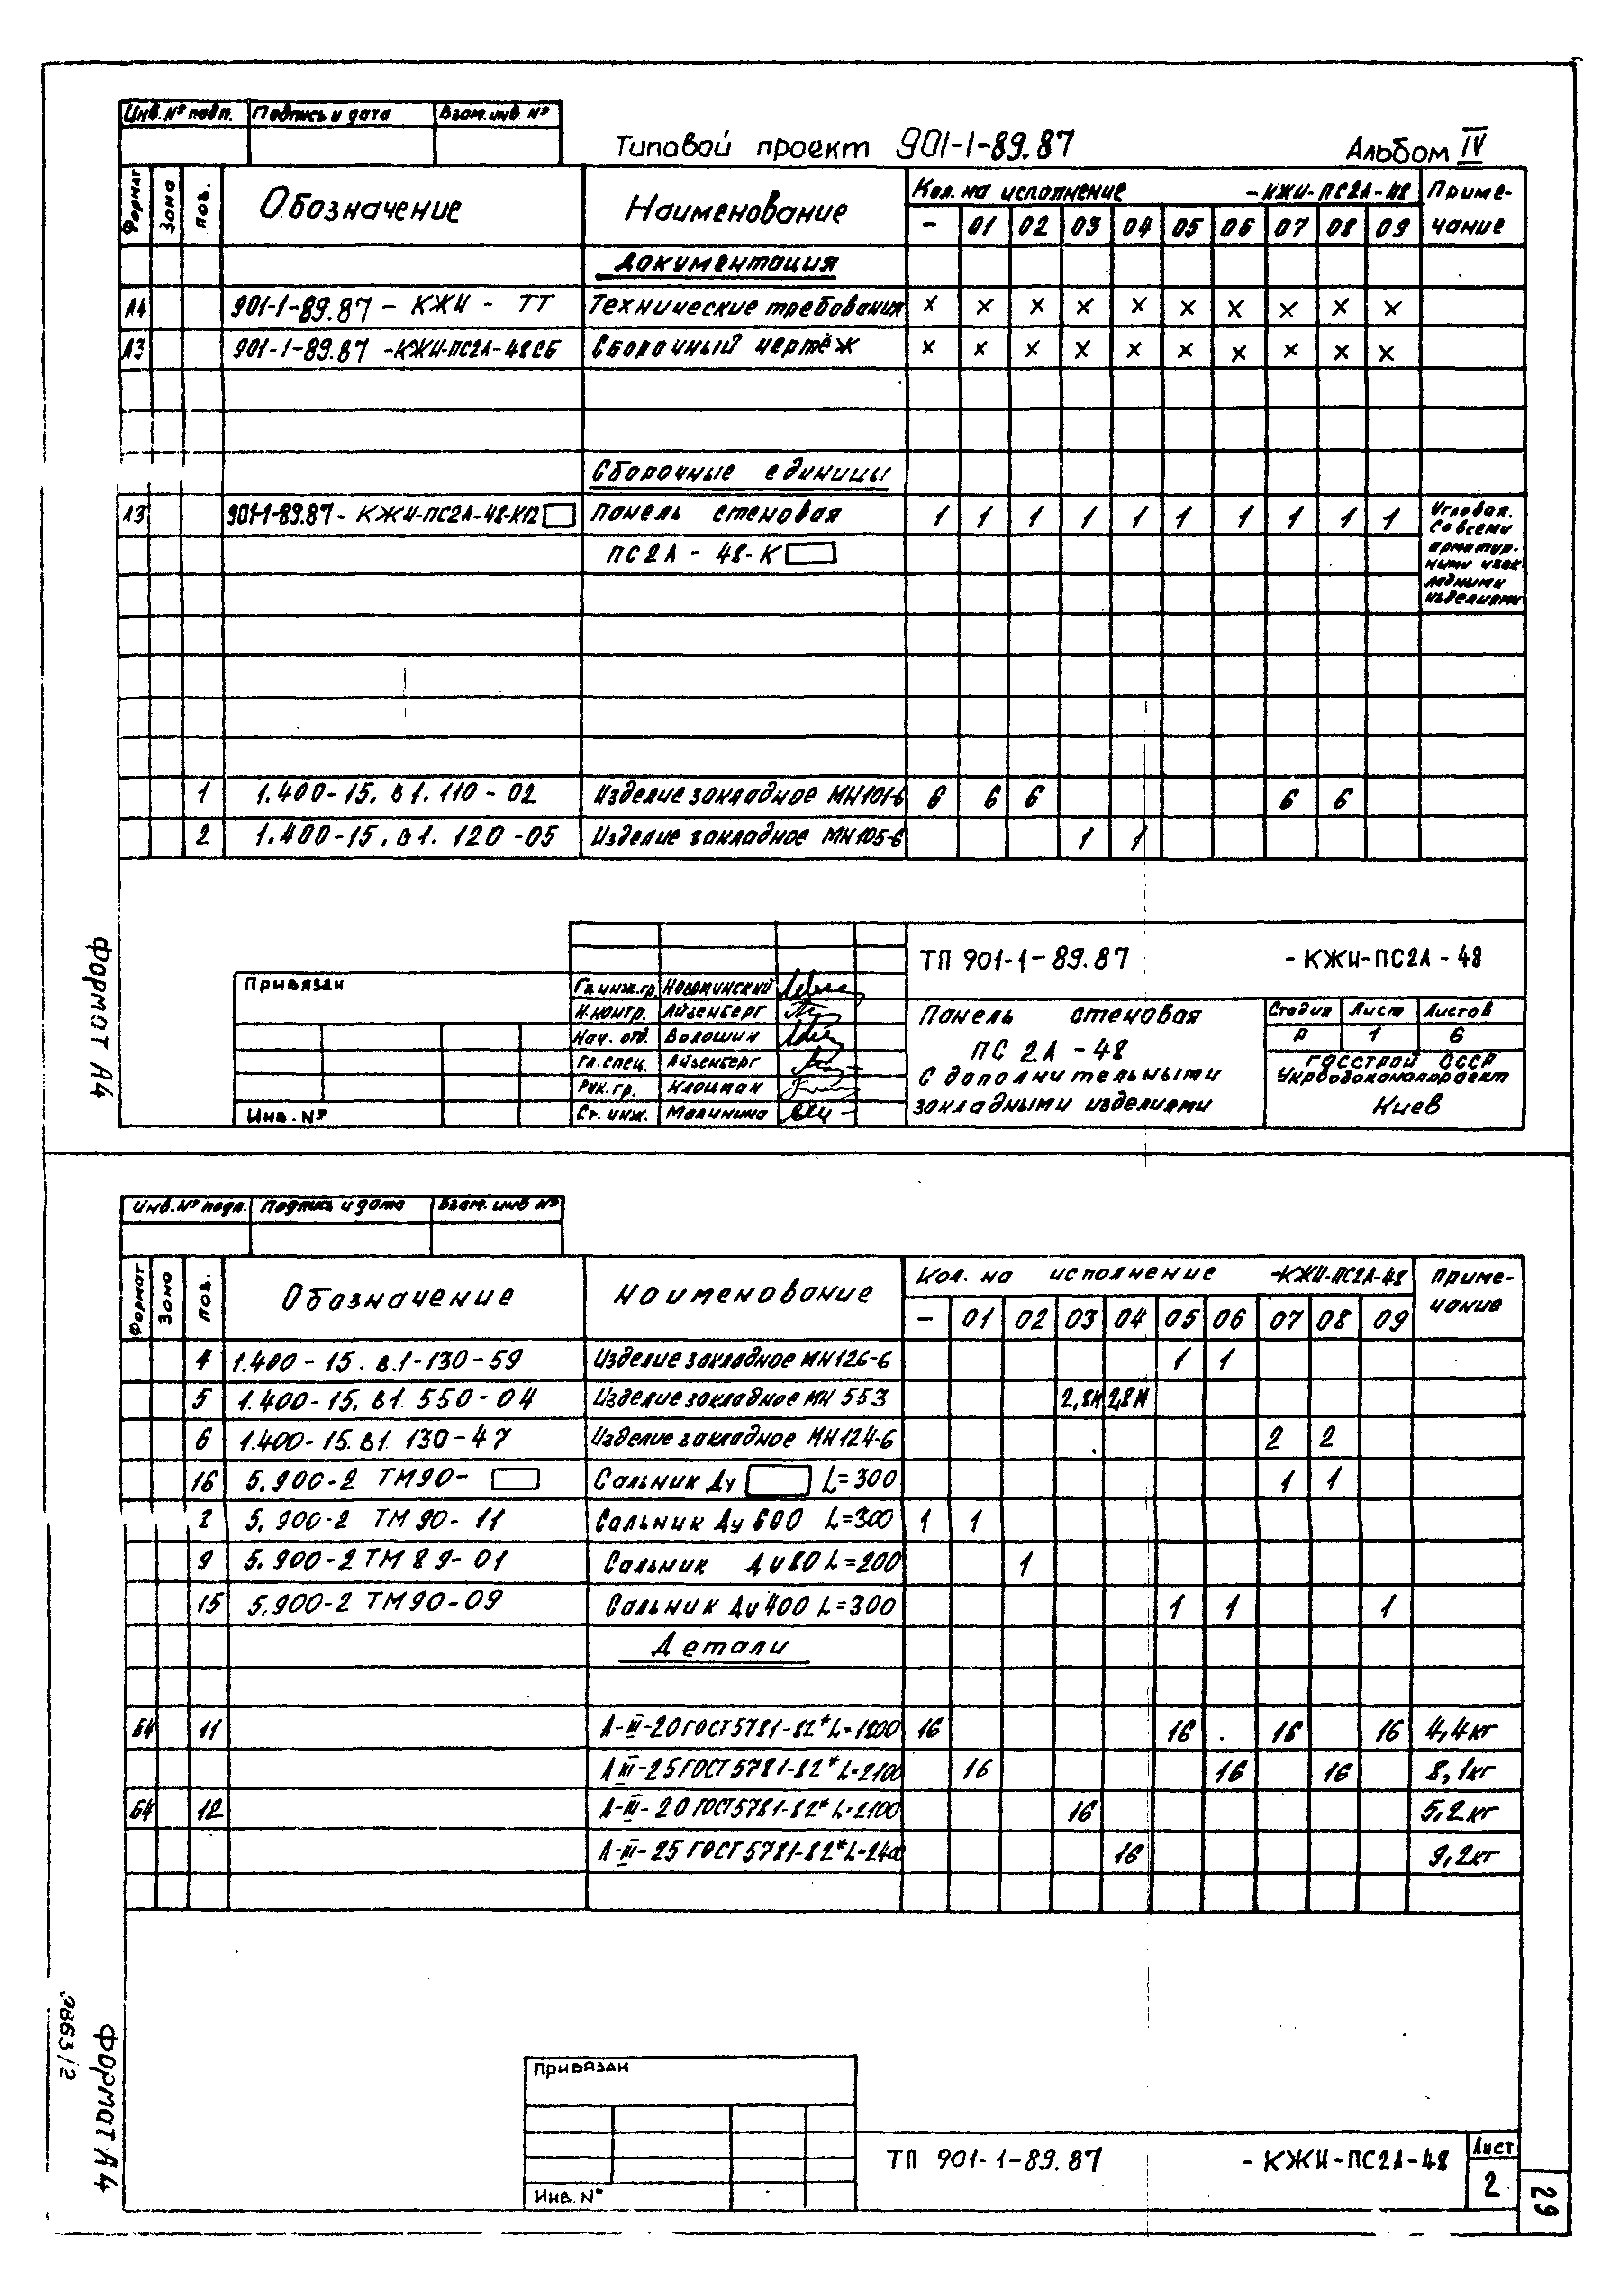 Инв. № подл. Подпись и дата Взам. инв. №
Типовой проект 901-1-89.87 Альбом IV
Формат Зона Поз. Обозначение Наименование Кол. на исполнение -КЖИ-ПС2А-48 Приме-
чание
- 01 02 03 04 05 06 07 08 09
Документация
А4 901-1-89.87 - КЖИ - ТТ Технические требования х х х х х х х х х х
А3 901-1-89.87 -КЖИ-ПС2А-48СБ Сборочный чертёж х х х х х х х х х х
Сборочные единицы
А3 901-1-89.87 - КЖИ-ПС2А-48-КП Панель стеновая 1 1 1 1 1 1 1 1 1 1 Угловая.
ПС2А - 48-К
Со всеми
арматур-
ными и зак
ладными
изделиями
1 1.400-15. в1. 110-02 Изделие закладное МН101-6 6 6 6 6 6
2 1.400-15. в1. 120-05 Изделие закладное МН105-6 1 1
Формат А4
ТП 901-1-89.87 -КЖИ-ПС2А-48
Привязан
Гл.инж.пр. Новоминский
Н.контр. Айзенберг
Нач. отд. Волошин
Гл.спец. Айзенберг
Рук. гр. Клоцман
Ст. инж. Малинина
Инв. №
Панель стеновая
ПС 2А - 48
С дополнительными
закладными изделиями
Стадия Лист Листов
Р 1 6
Госстрой СССР
Укрводоканалпроект
Киев
Инв. № подл. Подпись и дата Взам. инв №
Формат Зона Поз. Обозначение Наименование Кол. на исполнение -КЖИ-ПС2А-48 Приме-
чание
- 01 02 03 04 05 06 07 08 09
4 1.400-15. в.1-130-59 Изделие закладное МН126-6 1 1
5 1.400-15. в1. 550-04 Изделие закладное МН 553 2,8м 2,8м
6 1.400-15. в1. 130-47 Изделие закладное МН124-6 2 2
16 5.900-2 ТМ90- Сальник Ду L=300 1 1
5. 900-2 ТМ 90-11 Сальник Ду 600 L=300 1 1
9 5. 900-2 ТМ 89-01 Сальник Ду80 L=200 1
15 5.900-2 ТМ90-09 Сальник Ду 400 L=300 1 1 1
Детали
Б4 11 А-III-20 ГОСТ 5781-82* L=1800 16 16 16 16 4,4кг
А III-25 ГОСТ 5781-82* L=2100 16 16 16 8,1кг
Б4 12 А-III-20 ГОСТ 5781-82* L=2100 16 5,2кг
А-III-25 ГОСТ 5781-82* L=2400 16 9,2кг
Формат А4
Привязан
Инв. №
ТП 901-1-89.87 -КЖИ-ПС2А-48
Лист
2
29